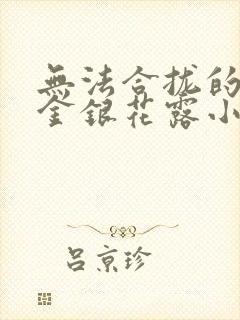 無法合拢的
金銀花露小
吕京珍